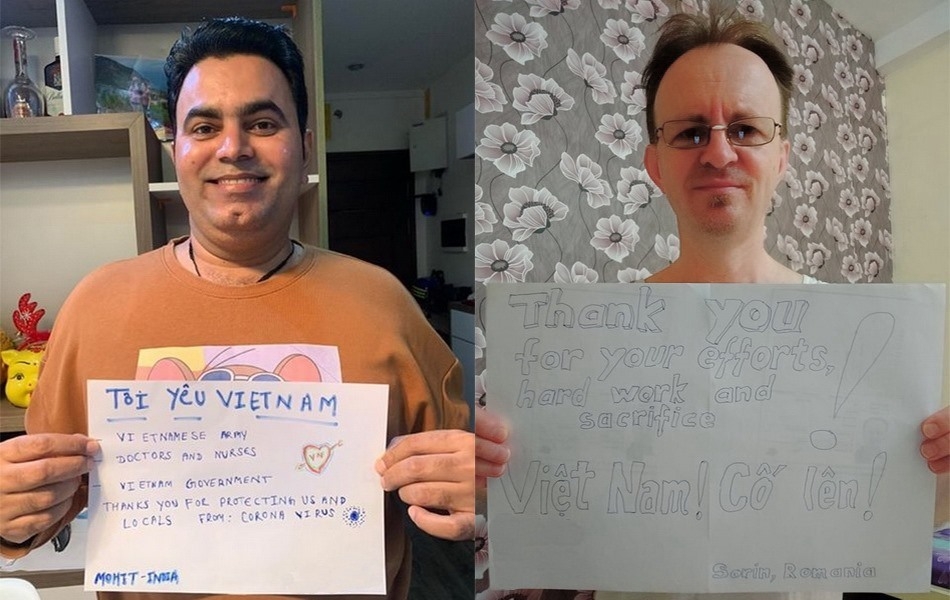 Tôi YÊU VIETNAM
- VIETNAMESE ARMY
DOCTORS AND NURSES
VN
- VIETNAM GOVERNMENT
THANKS YOU FOR PROTECTING US AND
LOCALS FROM: CORONA VIRUS
MOHIT-INDIA
Thank you
for your efforts,
hard work and
sacrifice !
Việt Nam! Cố lên!
Sorin, Romania